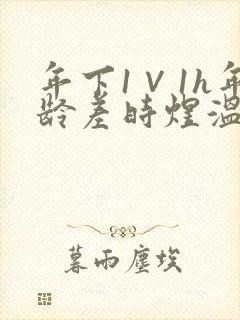 年下1V1h年
龄差時煋溫
暮雨塵埃